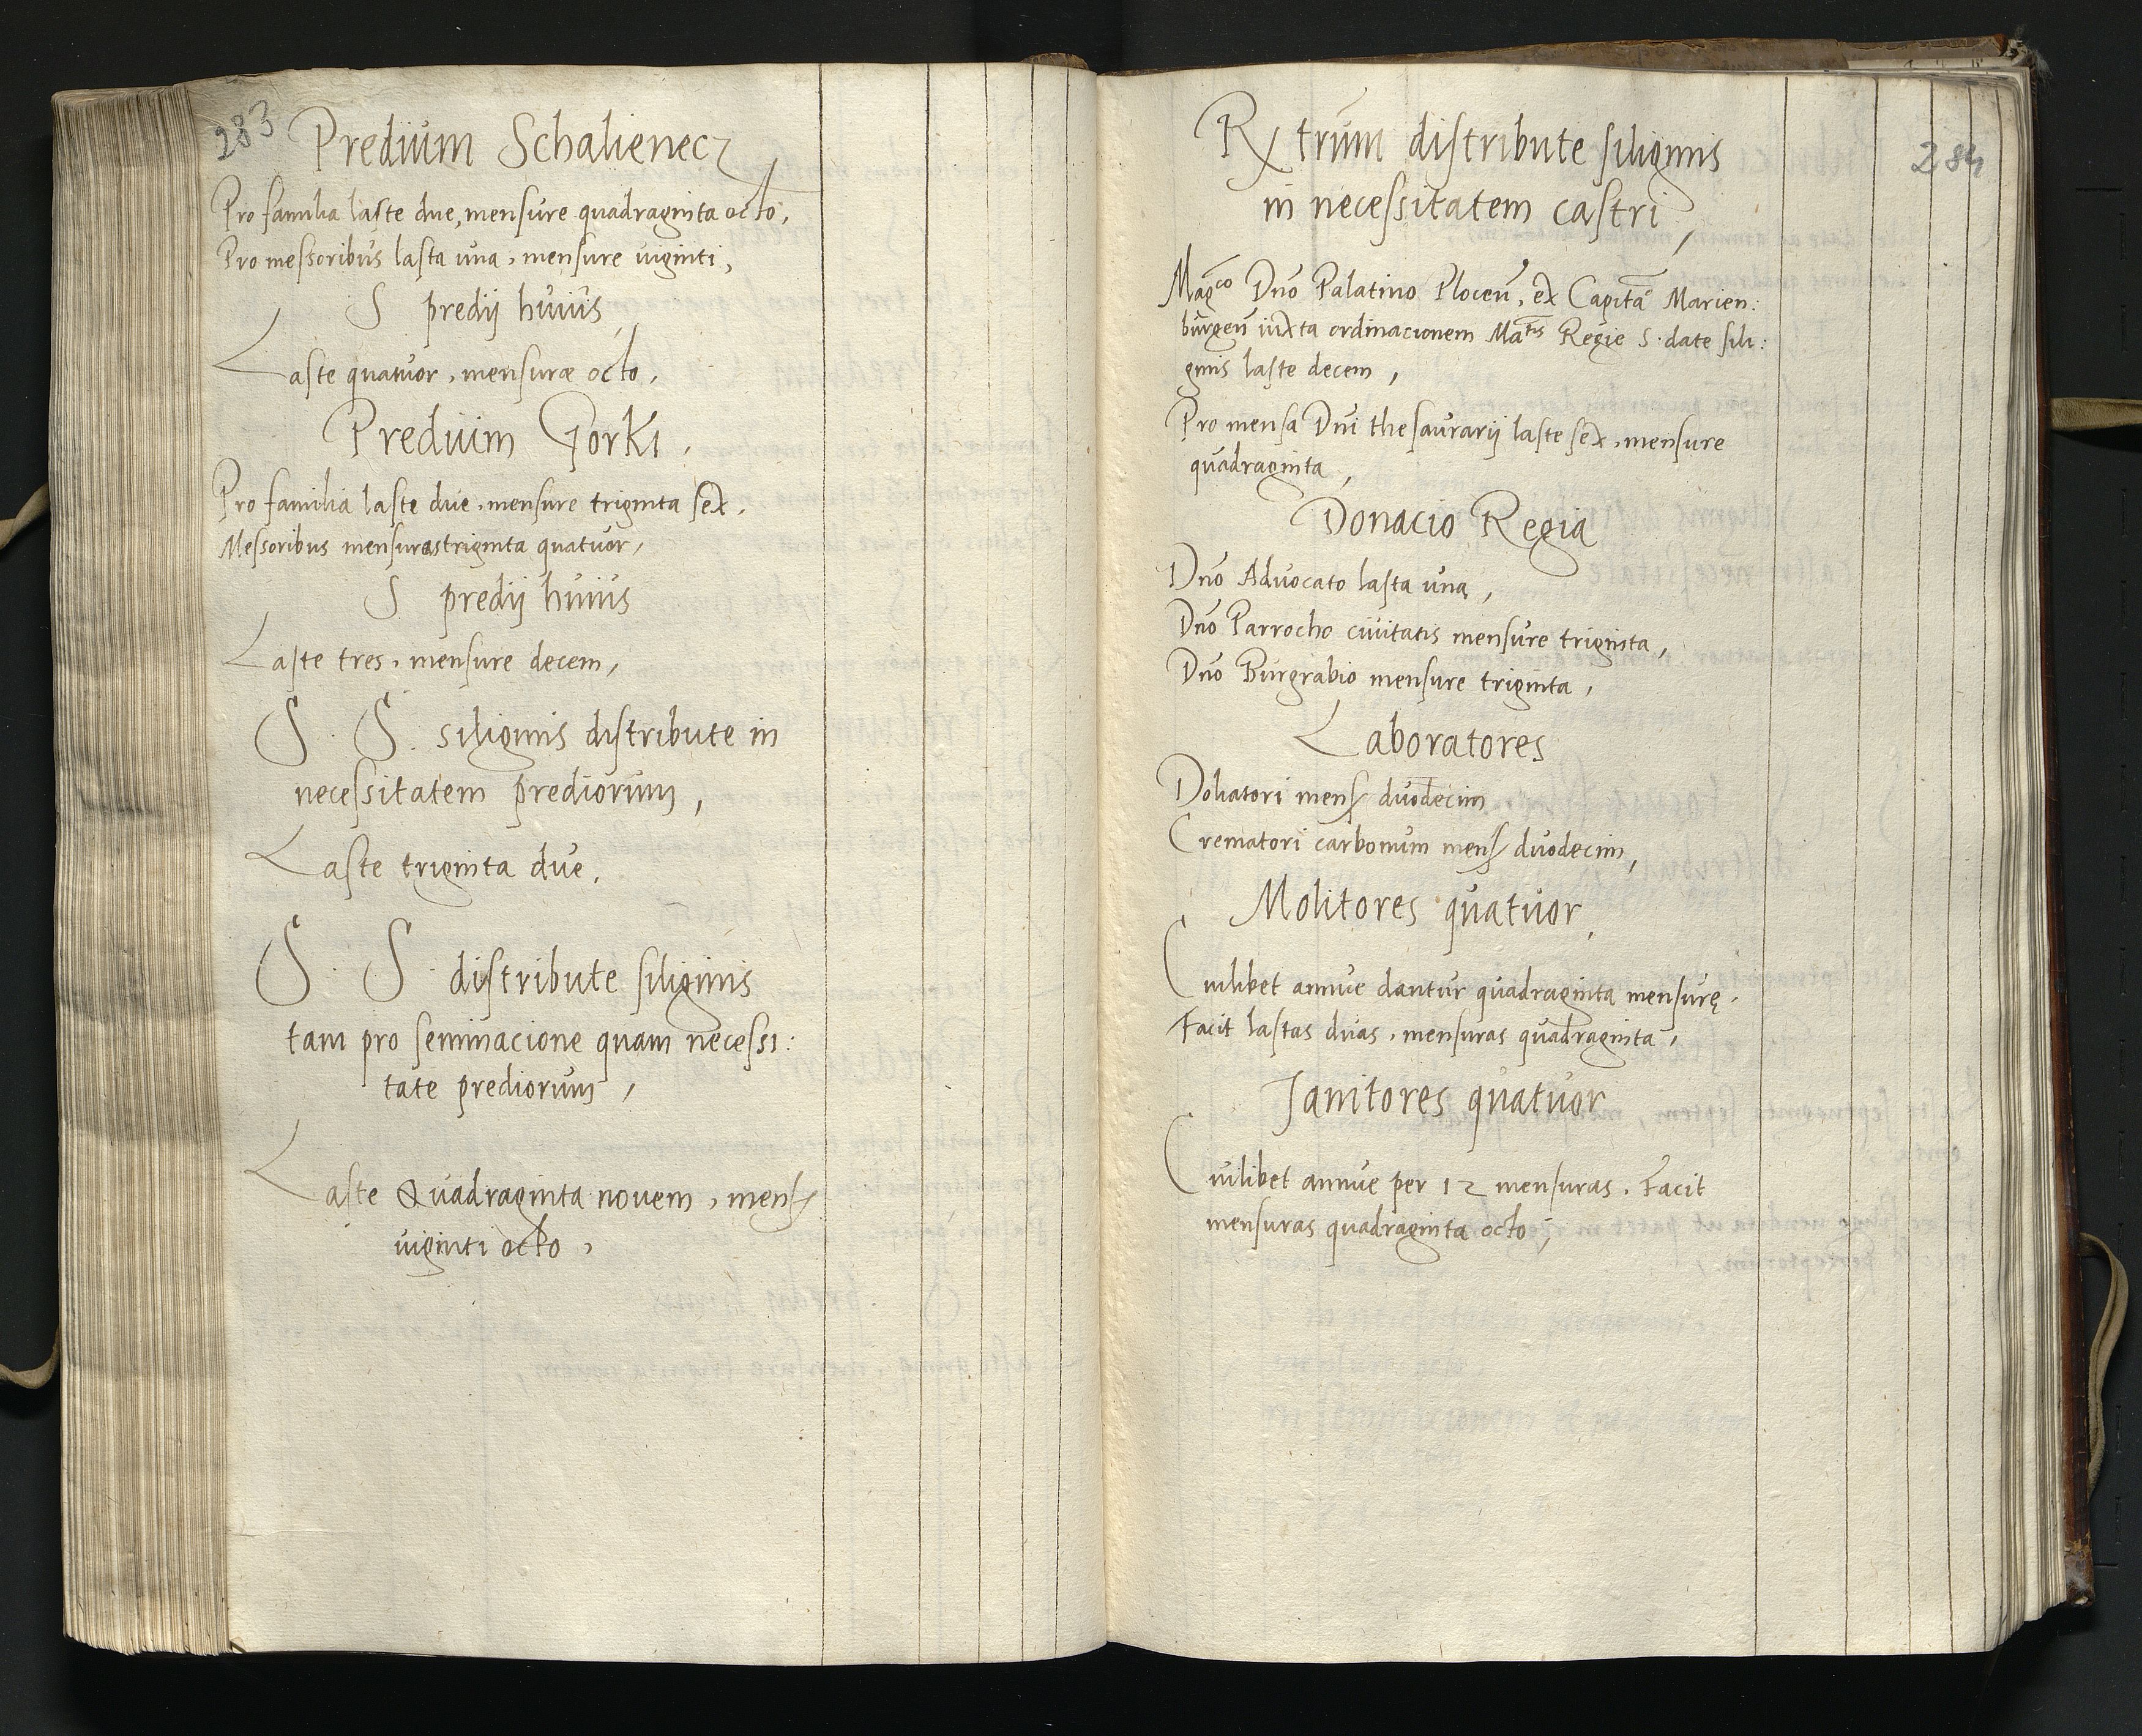 283
Predium Schalienecz
Pro familia laste due, mensure quadraginta octo,
Pro messoribus lasta una, mensure viginti,
S predij huius,
Laste quatuor, mensuræ octo,
Predium Gorki,
Pro familia laste due, mensure triginta sex,
Messoribus mensuras triginta quatuor,
S predij huius
Laste tres, mensure decem,
S. S. siliginis distribute in
necessitatem prediorum,
Laste triginta due.
S. S. distribute siliginis
tam pro seminacione quam necessi:
tate prediorum,
Laste Quadraginta novem, mens
viginti octo,
284
Rxtrum distribute siliginis
in necessitatem castri,
Magco Dno Palatino Plocen, ex Capita Marien:
burgen iuxta ordinacionem Matis Regie S. date sili:
ginis laste decem,
Pro mensa Dni thesaurarij laste sex, mensure
quadraginta,
Donacio Regia
Dno Advocato lasta una,
Dno Parrocho civitatis mensure triginta,
Dno Burgrabio mensure triginta,
Laboratores
Doliatori mens duodecim
Crematori carbonum mens duodecim,
Molitores quatuor,
Cuilibet annue dantur quadraginta mensurę.
Facit lastas duas, mensuras quadraginta,
Janitores quatuor
Cuilibet annue per 12 mensuras. Facit
mensuras quadraginta octo,